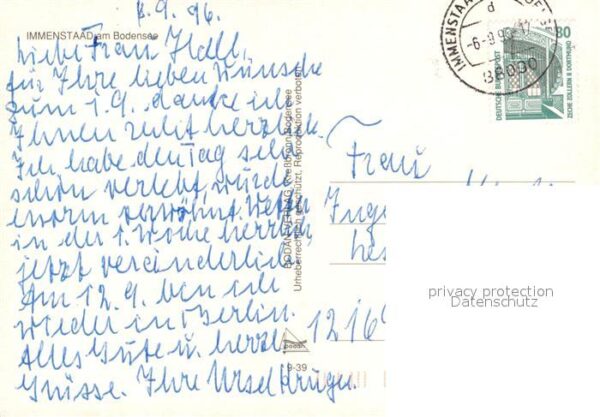 8.9.96.
IMMENSTAAD am Bodensee
Liebe Frau
für Ihre lieben Wünsche
zum 1.9. danke ich
Ihnen recht herzlich.
Ich habe den Tag sehr
schön verlebt, wurde
enorm verwöhnt. Wetter
in der 1. Woche herrlich,
jetzt veränderlich.
Am 12.9. bin ich
wieder in Berlin.
Alles Gute u. herzl.
Grüsse. Ihre Ursel Krüger.
BODAN-VERLAG, Kreßbronn Bodensee
Urheberrechtlich geschützt, Reproduktion verboten
bodan
9-39
IMMENSTAAD
d
-6.-9.96
88090
80
DEUTSCHE BUNDESPOST
ZECHE ZOLLERN II DORTMUND
Frau
Inge
1216
privacy protection
Datenschutz